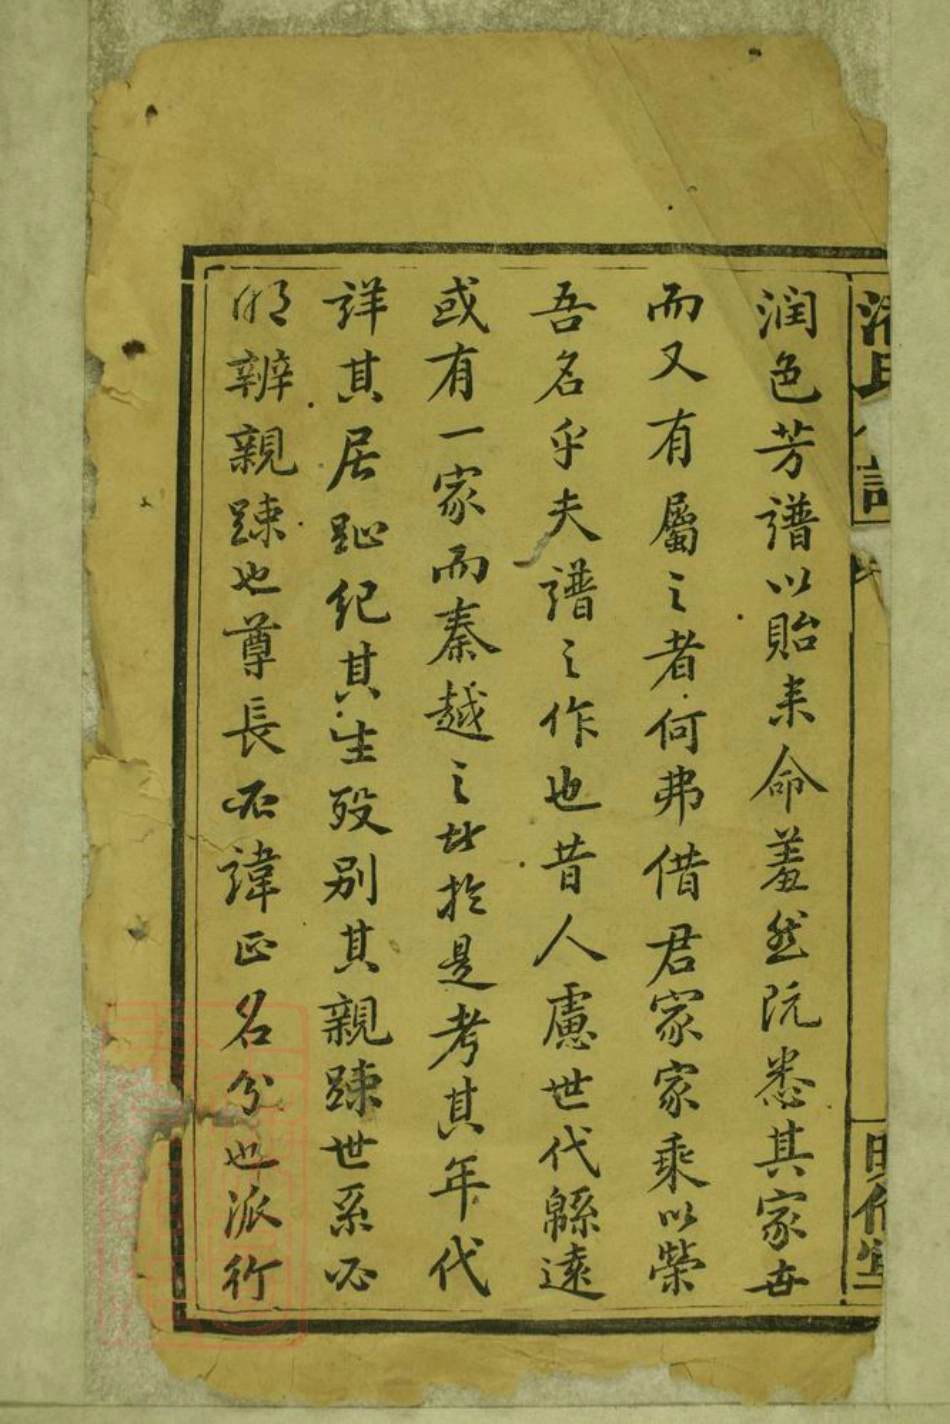 潘氏譜
润色芳譜以貽来命羞然阮悉其家世
而又有屬之者何弗借君家家乘以榮
吾名乎夫譜之作也昔人慮世代緜遠
或有一家而秦越之比於是考其年代
詳其居趾纪其生殁别其親踈世系必
明辨親踈也尊長必諱正名分也派行